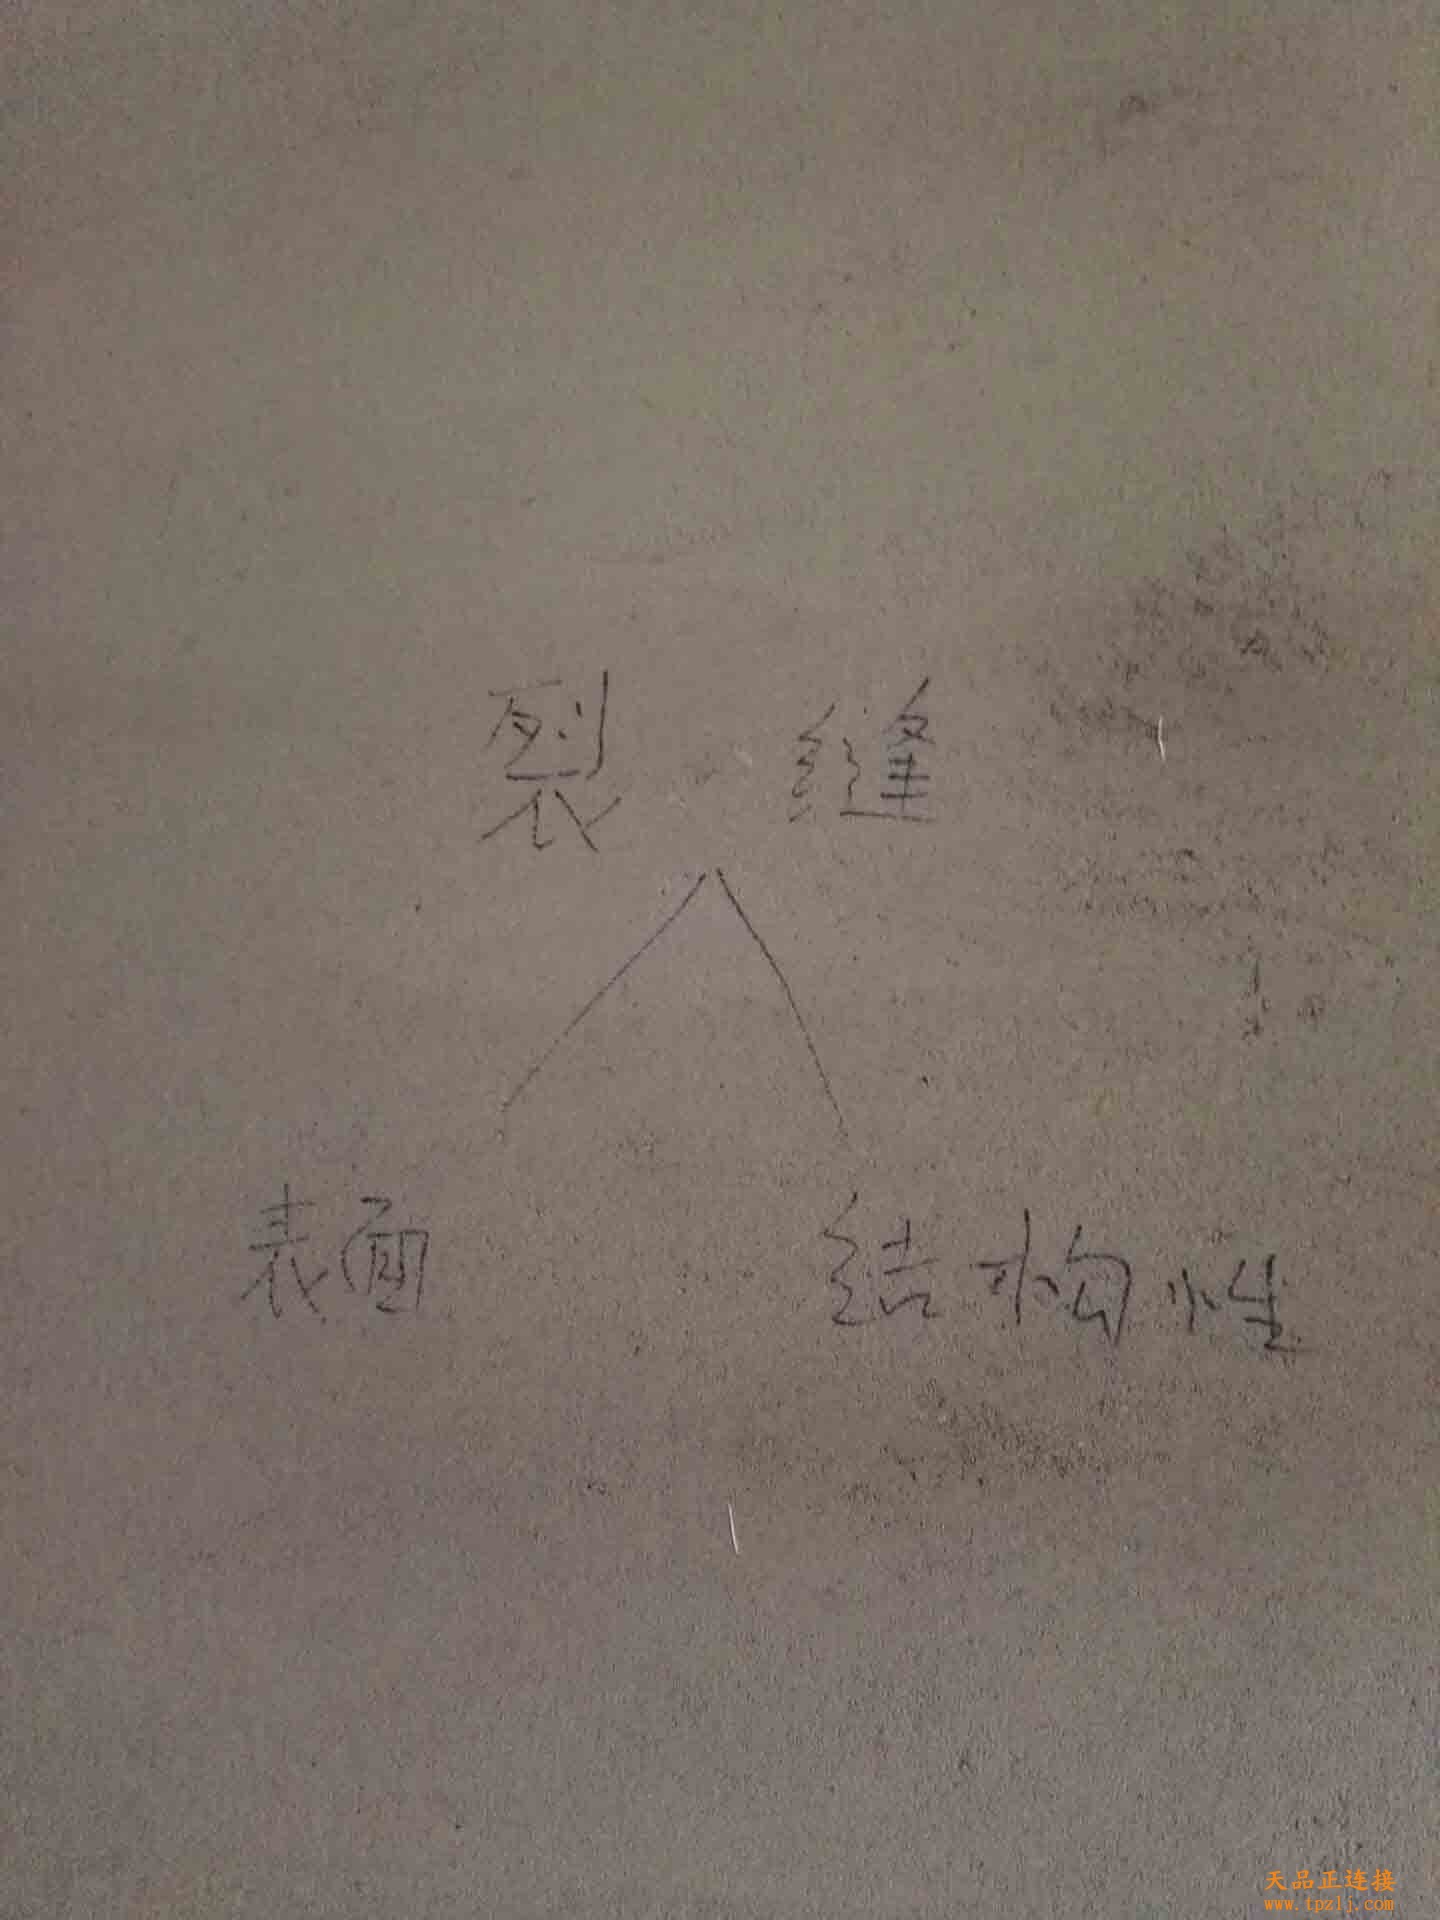 裂缝
表面 结构性
天品正连接
www.tpzlj.com